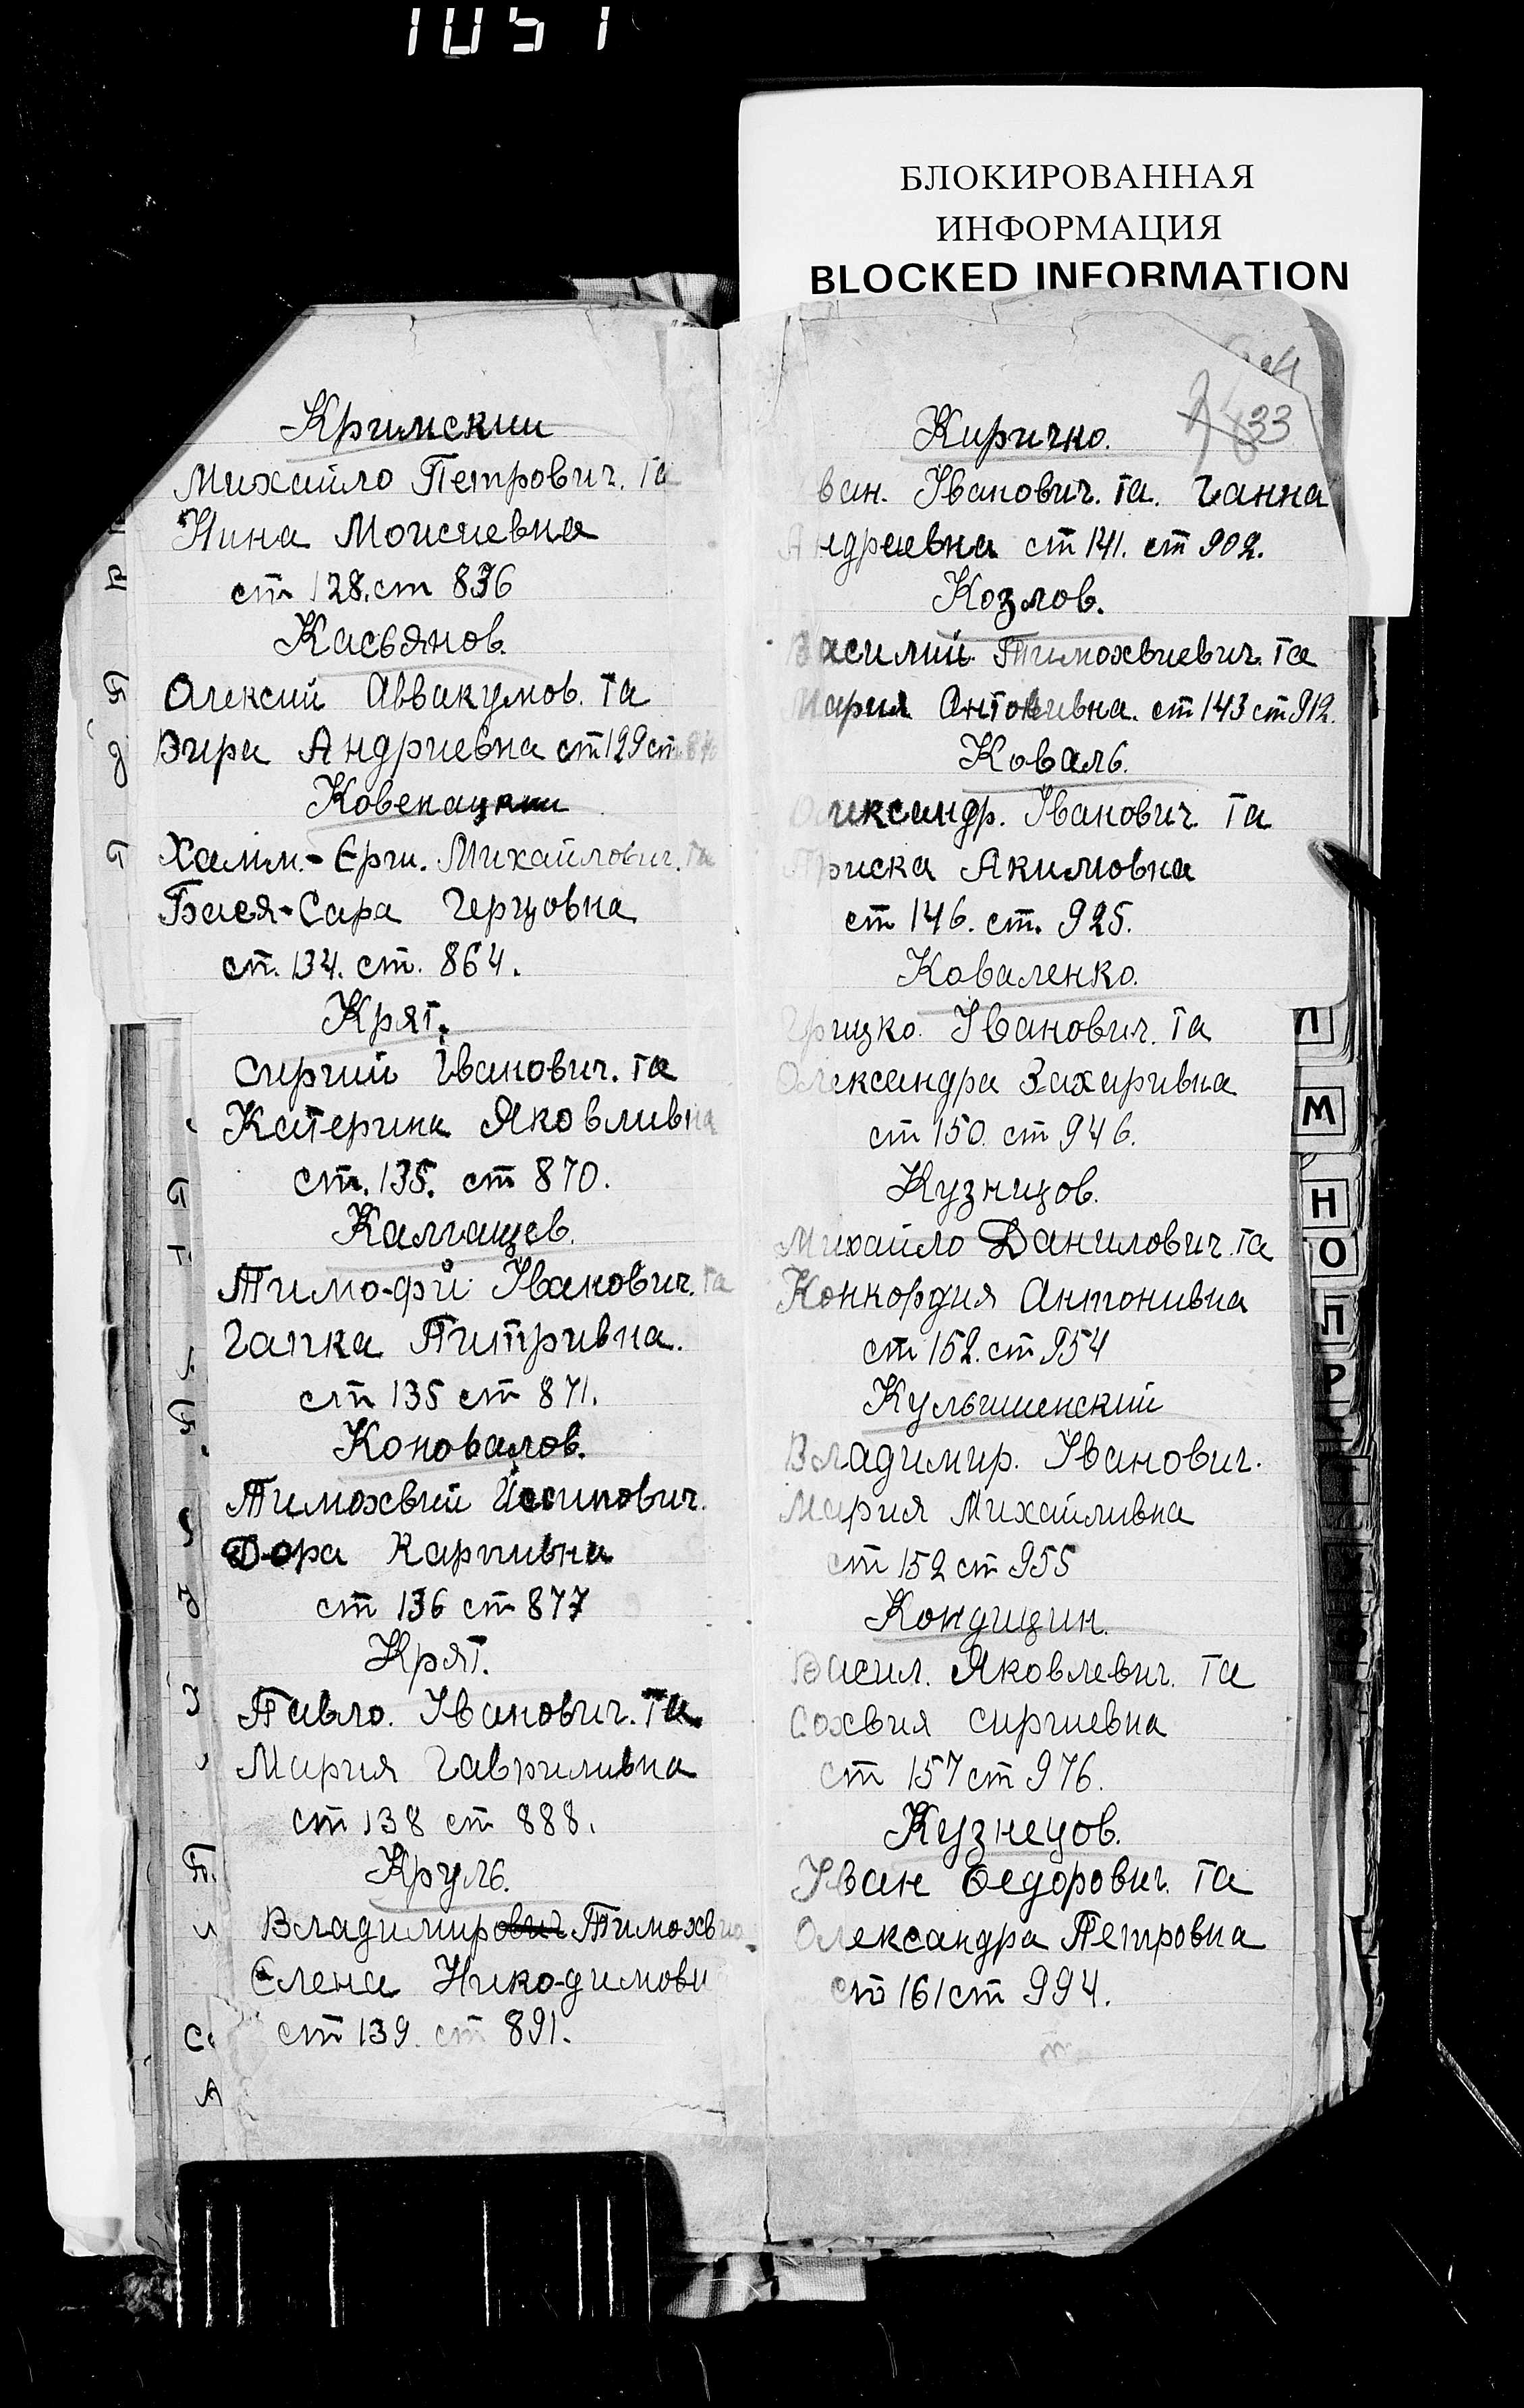 1051
БЛОКИРОВАННАЯ
ИНФОРМАЦИЯ
BLOCKED INFORMATION
Кримский
Михайло Петрович. та
Нина Моисиевна
ст 128. ст 836
Касьянов.
Олексий Аввакумов. та
Вира Андриевна ст 129 ст.
Ковенацкий
Хаим.-Ерш. Михайлович. та
Бася-Сара Герцовна
ст. 134. ст. 864.
Крят.
Сиргий Іванович. та
Катерина Яковливна
ст. 135. ст 870.
Калгащев.
Тимофій Іванович. та
Гапка Питривна.
ст 135 ст 871.
Коновалов.
Тимохвий Йосипович.
Дора Карпивна
ст 136 ст 877
Крят.
Павло. Іванович. та
Мария Гавриливна
ст 138 ст 888.
Круль.
Владимирович Тимохви
Єлена Никодимовн
ст 139. ст 891.
33
Киричко.
ван. Іванович. та. Ганна
Андреевна ст 141. ст 902.
Козлов.
Василий Тимохвиевич. та
Мария Антонивна. ст 143 ст 912.
Коваль.
Олександр. Іванович та
Приска Акимовна
ст 146. ст. 925.
Коваленко.
Грицко. Іванович. та
Олександра Захаривна
ст 150. ст 946.
Кузницов.
Михайло Данилович. та
Конкордия Антонивна
ст 152. ст 954
Кульчиенский
Владимир. Іванович.
Мария Михайливна
ст 152 ст 955
Кондицин.
Васил. Яковлевич. та
Сохвия Сиргиевна
ст 157 ст 976.
Кузнецов.
Іван Федорович. та
Олександра Петровна
ст 161 ст 994.
Л
М
Н
О
П
Р